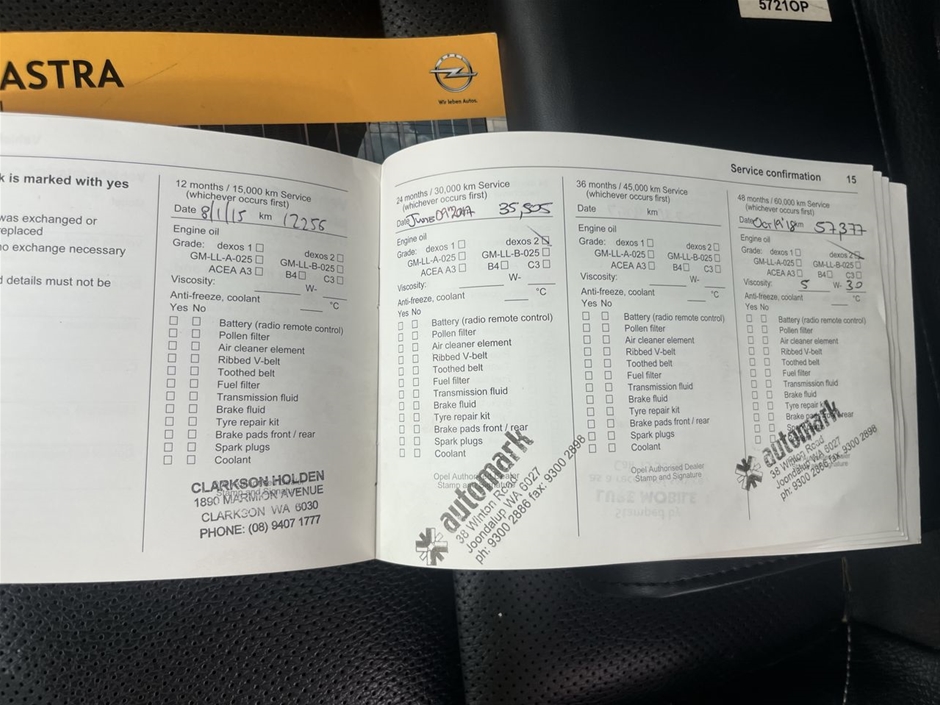 5721OP
ASTRA
Wir leben Autos.
Service confirmation 15
k is marked with yes
was exchanged or
eplaced
no exchange necessary
d details must not be
12 months / 15,000 km Service
(whichever occurs first)
Date 8/1/15 km 12256
Engine oil
Grade: dexos 1 □ dexos 2 □
GM-LL-A-025 □ GM-LL-B-025 □
ACEA A3 □ B4 □ C3 □
Viscosity: W-
Anti-freeze, coolant °C
Yes No
□ □ Battery (radio remote control)
□ □ Pollen filter
□ □ Air cleaner element
□ □ Ribbed V-belt
□ □ Toothed belt
□ □ Fuel filter
□ □ Transmission fluid
□ □ Brake fluid
□ □ Tyre repair kit
□ □ Brake pads front / rear
□ □ Spark plugs
□ □ Coolant
CLARKSON HOLDEN
1890 MARMION AVENUE
CLARKSON WA 6030
PHONE: (08) 9407 1777
24 months / 30,000 km Service
(whichever occurs first)
Date June 09 2017 35,505
Engine oil
Grade: dexos 1 □ dexos 2 □
GM-LL-A-025 □ GM-LL-B-025 □
ACEA A3 □ B4 □ C3 □
Viscosity: W-
Anti-freeze, coolant °C
Yes No
□ □ Battery (radio remote control)
□ □ Pollen filter
□ □ Air cleaner element
□ □ Ribbed V-belt
□ □ Toothed belt
□ □ Fuel filter
□ □ Transmission fluid
□ □ Brake fluid
□ □ Tyre repair kit
□ □ Brake pads front / rear
□ □ Spark plugs
□ □ Coolant
Opel Authorised
Stamp and Signature
automark
38 Winton Road
Joondalup WA 6027
ph: 9300 2886 fax: 9300 2898
36 months / 45,000 km Service
(whichever occurs first)
Date km
Engine oil
Grade: dexos 1 □ dexos 2 □
GM-LL-A-025 □ GM-LL-B-025 □
ACEA A3 □ B4 □ C3 □
Viscosity: W-
Anti-freeze, coolant °C
Yes No
□ □ Battery (radio remote control)
□ □ Pollen filter
□ □ Air cleaner element
□ □ Ribbed V-belt
□ □ Toothed belt
□ □ Fuel filter
□ □ Transmission fluid
□ □ Brake fluid
□ □ Tyre repair kit
□ □ Brake pads front / rear
□ □ Spark plugs
□ □ Coolant
Opel Authorised Dealer
Stamp and Signature
48 months / 60,000 km Service
(whichever occurs first)
Date Oct 19 '18 km 57,377
Engine oil
Grade: dexos 1 □ dexos 2 □
GM-LL-A-025 □ GM-LL-B-025 □
ACEA A3 □ B4 □ C3 □
Viscosity: 5 W- 30
Anti-freeze, coolant °C
Yes No
□ □ Battery (radio remote control)
□ □ Pollen filter
□ □ Air cleaner element
□ □ Ribbed V-belt
□ □ Toothed belt
□ □ Fuel filter
□ □ Transmission fluid
□ □ Brake fluid
□ □ Tyre repair kit
□ □ Brake pads front / rear
automark
38 Winton Road
Joondalup WA 6027
ph: 9300 2886 fax: 9300 2898